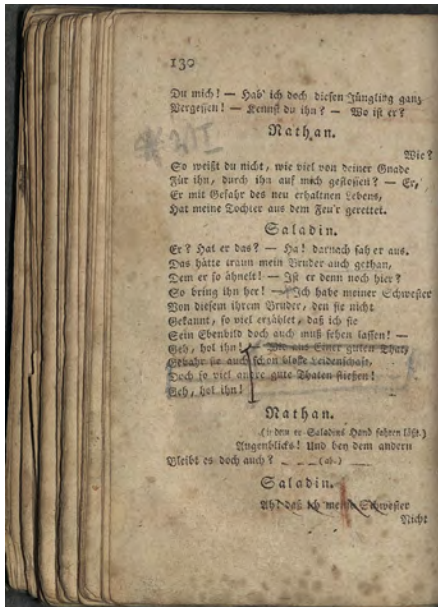 130
Du mich! — Hab' ich doch diesen Jüngling ganz
Vergessen! — Kennst du ihn? — Wo ist er?
Nathan.
Wie?
So weißt du nicht, wie viel von deiner Gnade
Für ihn, durch ihn auf mich geflossen? — Er,
Er mit Gefahr des neu erhaltnen Lebens,
Hat meine Tochter aus dem Feu'r gerettet.
Saladin.
Er? Hat er das? — Ha! darnach sah er aus.
Das hätte traun mein Bruder auch gethan,
Dem er so ähnelt! — Ist er denn noch hier?
So bring ihn her! — Ich habe meiner Schwester
Von diesem ihrem Bruder, den sie nicht
Gekannt, so viel erzählet, daß ich sie
Sein Ebenbild doch auch muß sehen lassen! —
Geh, hol ihn! — Wie aus Einer guten That,
Gebahr sie auch schon bloße Leidenschaft,
Doch so viel andre gute Thaten fließen!
Geh, hol ihn!
Nathan.
(indem er Saladins Hand fahren läßt.)
Augenblicks! Und bey dem andern
Bleibt es doch auch? (ab.)
Saladin.
Ah! daß ich meine Schwester
Nicht